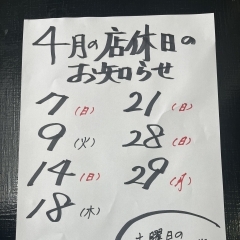 4月の店休日の
お知らせ
7(日) 21(日)
9(火) 28(日)
14(日) 29(月)
18(木)
土曜日の